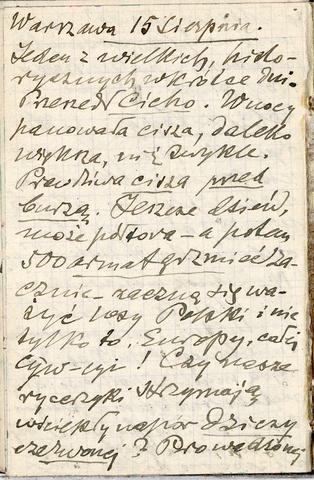 Warszawa 15 Sierpnia.
Jeden z wielkich, histo-
rycznych wkrótce dni.
Przeszedł cicho. W nocy
panowała cisza, daleko
większa, niż zwykle.
Prawdziwa cisza przed
burzą. Jeszcze dzień,
może półtora – a potem
500 armat grzmieć za-
cznie – zaczną się wa-
żyć losy Polski i nie
tylko to. Europy, całej
cyw-cyi! Czy nasze
rycerzyki strzymają
wściekły napór dziczy
czerwonej? Prowadzonej